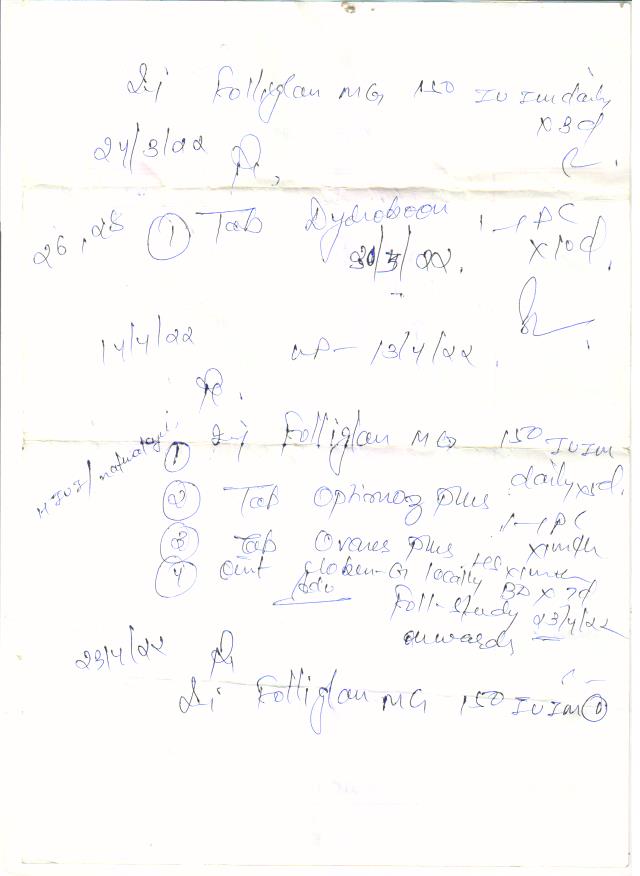 Inj Folliglan MG 150 IU IM daily
x 3d
24/3/22 Rx,
26, 28 ① Tab Dydroboon 1-1 PC
x10d.
30/3/22.
14/4/22 LMP- 13/4/22.
Rx.
① Inj Folliglan MG 150 IU IM
daily x5d.
② Tab Optimoz plus
1-1 PC
③ Tab Ovares plus x1mth
④ Oint Globen-G locally BD x 7d
Adv Foll-study 23/4/22
onwards
23/4/22 Rx
Inj Folliglan MG 150 IU IM